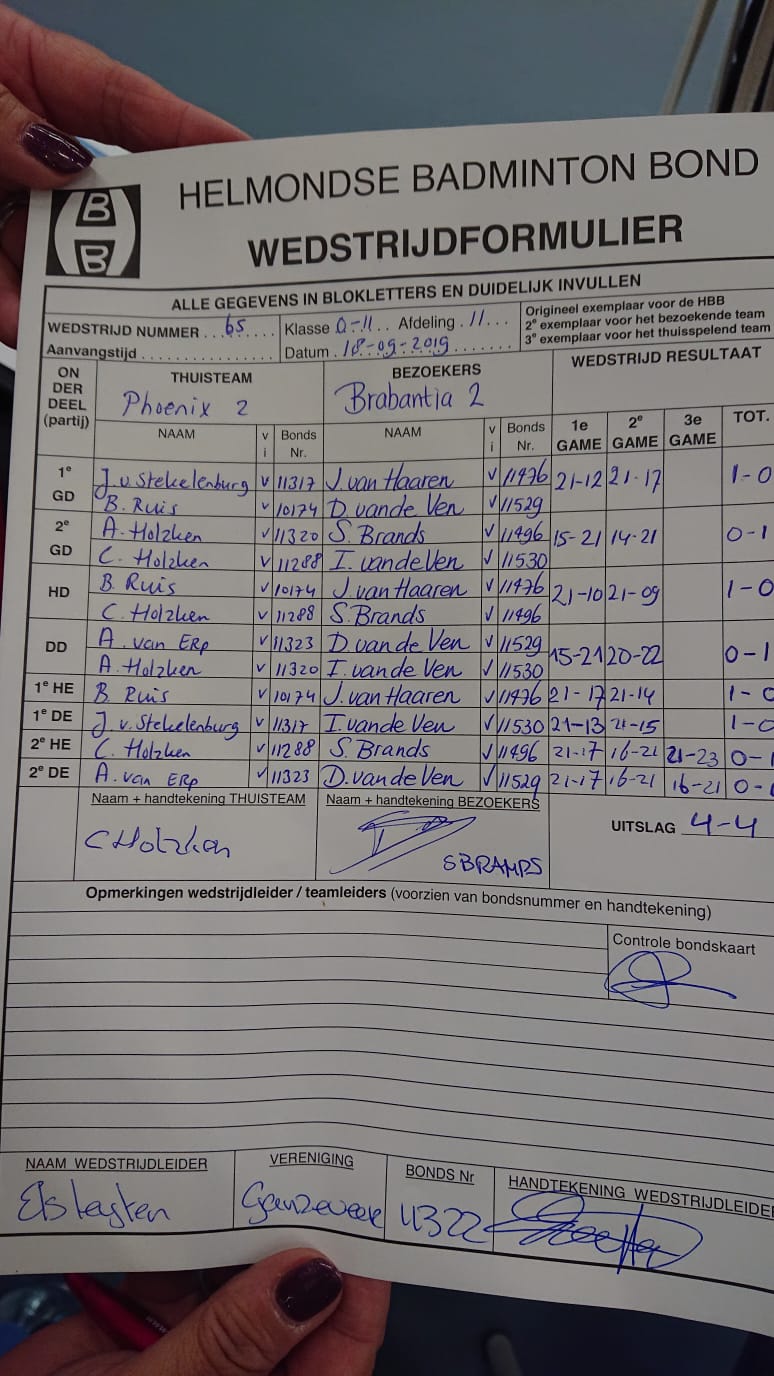 B
B
HELMONDSE BADMINTON BOND
WEDSTRIJDFORMULIER
ALLE GEGEVENS IN BLOKLETTERS EN DUIDELIJK INVULLEN
WEDSTRIJD NUMMER ... 65 ......
Klasse O-11 .. Afdeling . 11 ...
Origineel exemplaar voor de HBB
2e exemplaar voor het bezoekende team
3e exemplaar voor het thuisspelend team
Aanvangstijd ................
Datum . 18-09-2019 .......
ON DER DEEL (partij)
THUISTEAM
BEZOEKERS
WEDSTRIJD RESULTAAT
Phoenix 2
Brabantia 2
NAAM v i Bonds Nr. NAAM v i Bonds Nr. 1e GAME 2e GAME 3e GAME TOT.
1e GD J. v. Stekelenburg v 11317 J. van Haaren v 11476 21-12 21-17 1-0
B. Ruis v 10174 D. van de Ven v 11529
2e GD A. Holzken v 11320 S. Brands v 11496 15-21 14-21 0-1
C. Holzken v 11288 I. van de Ven v 11530
HD B. Ruis v 10174 J. van Haaren v 11476 21-10 21-09 1-0
C. Holzken v 11288 S. Brands v 11496
DD A. van ERp v 11323 D. van de Ven v 11529 15-21 20-22 0-1
A. Holzken v 11320 I. van de Ven v 11530
1e HE B. Ruis v 10174 J. van Haaren v 11476 21-17 21-14 1-0
1e DE J. v. Stekelenburg v 11317 I. van de Ven v 11530 21-13 21-15 1-0
2e HE C. Holzken v 11288 S. Brands v 11496 21-17 16-21 21-23 0-1
2e DE A. van ERp v 11323 D. van de Ven v 11529 21-17 16-21 16-21 0-1
Naam + handtekening THUISTEAM
Naam + handtekening BEZOEKERS
UITSLAG 4-4
C Holzken
S BRANDS
Opmerkingen wedstrijdleider / teamleiders (voorzien van bondsnummer en handtekening)
Controle bondskaart
NAAM WEDSTRIJDLEIDER
VERENIGING
BONDS Nr
HANDTEKENING WEDSTRIJDLEIDER
Els
4322